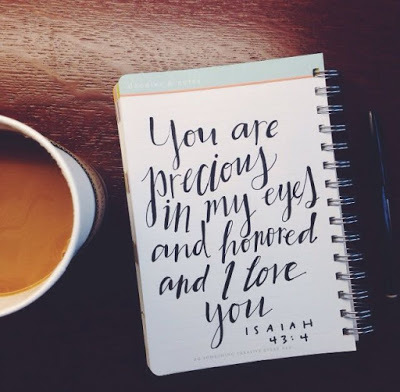 You are
precious
in my eyes
and honored
and I love
you
ISAIAH
43:4